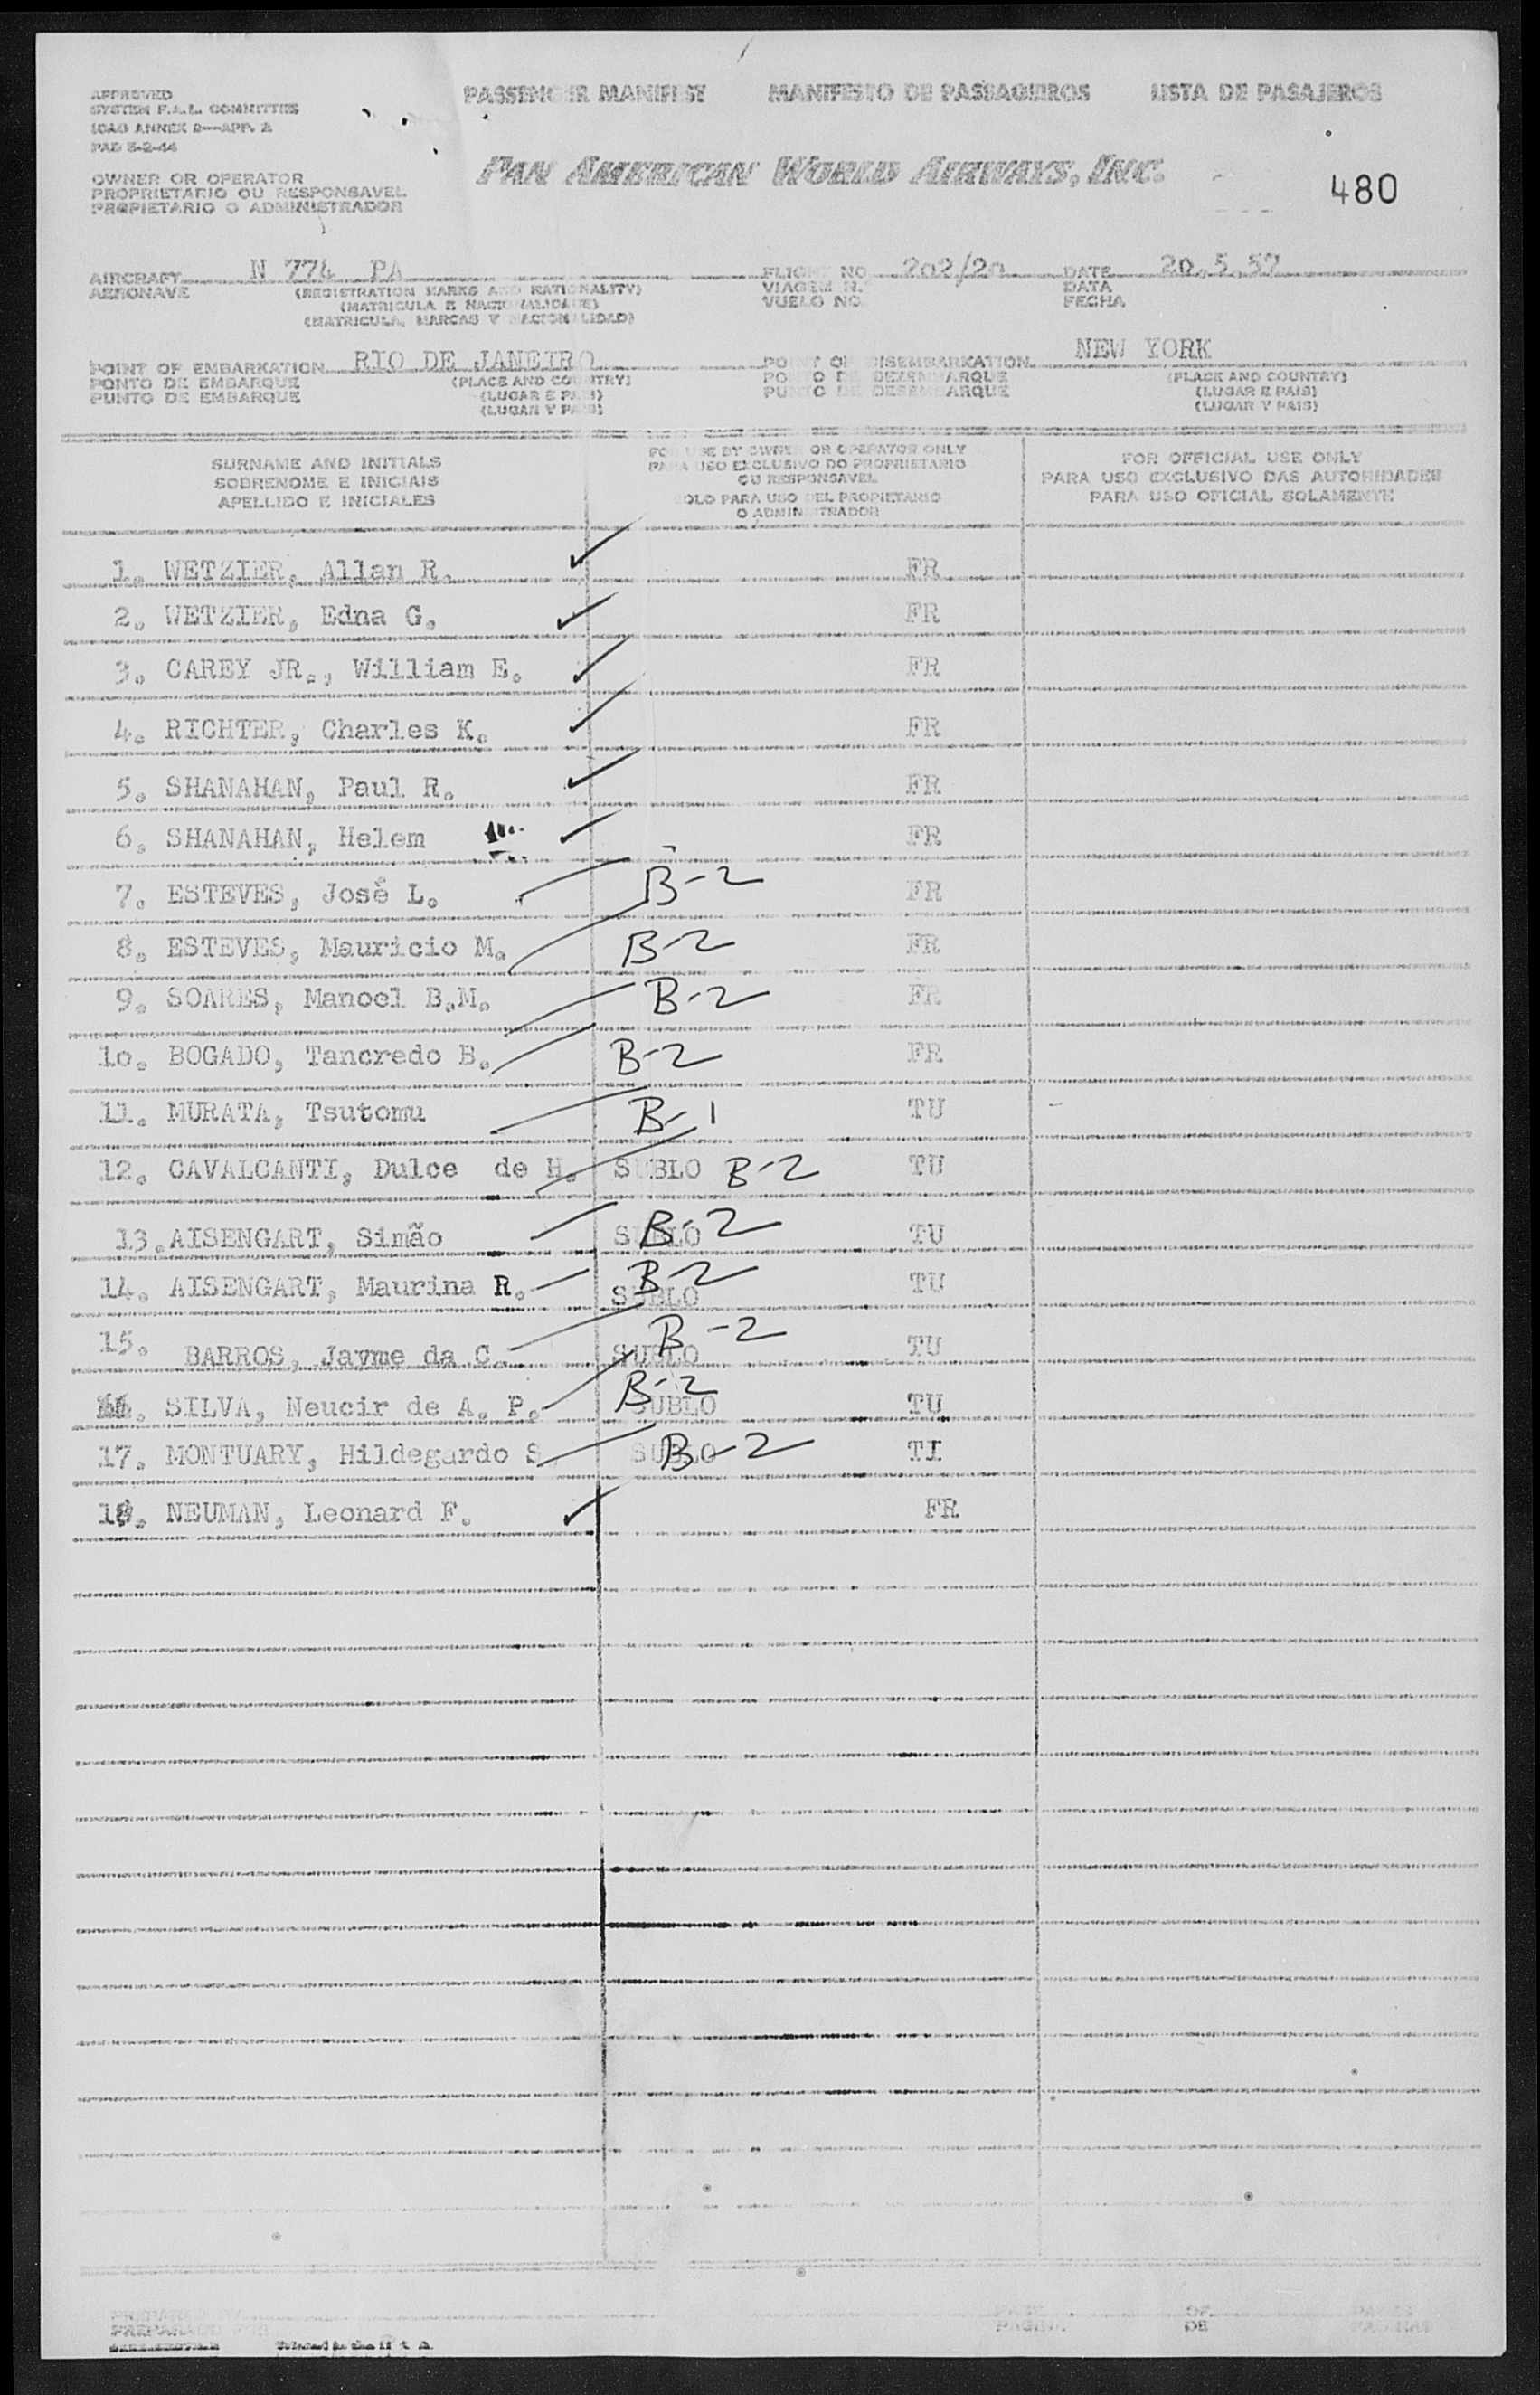 APPROVED
SYSTEM F.A.L. COMMITTEE
ICAO ANNEX 9—APP. 2
PAD 5-2-44
PASSENGER MANIFEST MANIFESTO DE PASSAGEIROS LISTA DE PASAJEROS
PAN AMERICAN WORLD AIRWAYS, INC.
480
OWNER OR OPERATOR
PROPRIETARIO OU RESPONSAVEL
PROPIETARIO O ADMINISTRADOR
AIRCRAFT N 774 PA FLIGHT NO 202/20 DATE 20.5.57
AERONAVE (REGISTRATION MARKS AND NATIONALITY) VIAGEM N.º DATA
(MATRICULA E NACIONALIDADE) VUELO NO. FECHA
(MATRICULA, MARCAS Y NACIONALIDAD)
POINT OF EMBARKATION RIO DE JANEIRO POINT OF DISEMBARKATION NEW YORK
PONTO DE EMBARQUE (PLACE AND COUNTRY) PONTO DE DESEMBARQUE (PLACE AND COUNTRY)
PUNTO DE EMBARQUE (LUGAR E PAIS) PUNTO DE DESEMBARQUE (LUGAR E PAIS)
(LUGAR Y PAIS) (LUGAR Y PAIS)
SURNAME AND INITIALS
SOBRENOME E INICIAIS
APELLIDO E INICIALES
FOR USE BY OWNER OR OPERATOR ONLY
PARA USO EXCLUSIVO DO PROPRIETARIO
OU RESPONSAVEL
SOLO PARA USO DEL PROPIETARIO
O ADMINISTRADOR
FOR OFFICIAL USE ONLY
PARA USO EXCLUSIVO DAS AUTORIDADES
PARA USO OFICIAL SOLAMENTE
1. WETZIER, Allan R. FR
2. WETZIER, Edna G. FR
3. CAREY JR., William E. FR
4. RICHTER, Charles K. FR
5. SHANAHAN, Paul R. FR
6. SHANAHAN, Helem FR
7. ESTEVES, José L. B-2 FR
8. ESTEVES, Mauricio M. B-2 FR
9. SOARES, Manoel B.M. B-2 FR
10. BOGADO, Tancredo B. B-2 FR
11. MURATA, Tsutomu B-1 TU
12. CAVALCANTI, Dulce de H. SUBLO B-2 TU
13. AISENGART, Simão SUBLO B-2 TU
14. AISENGART, Maurina R. SUBLO B-2 TU
15. BARROS, Jayme da C. SUBLO B-2 TU
16. SILVA, Neucir de A. P. SUBLO B-2 TU
17. MONTUARY, Hildegardo S SUBLO B-2 TI
18. NEUMAN, Leonard F. FR
OF
DE